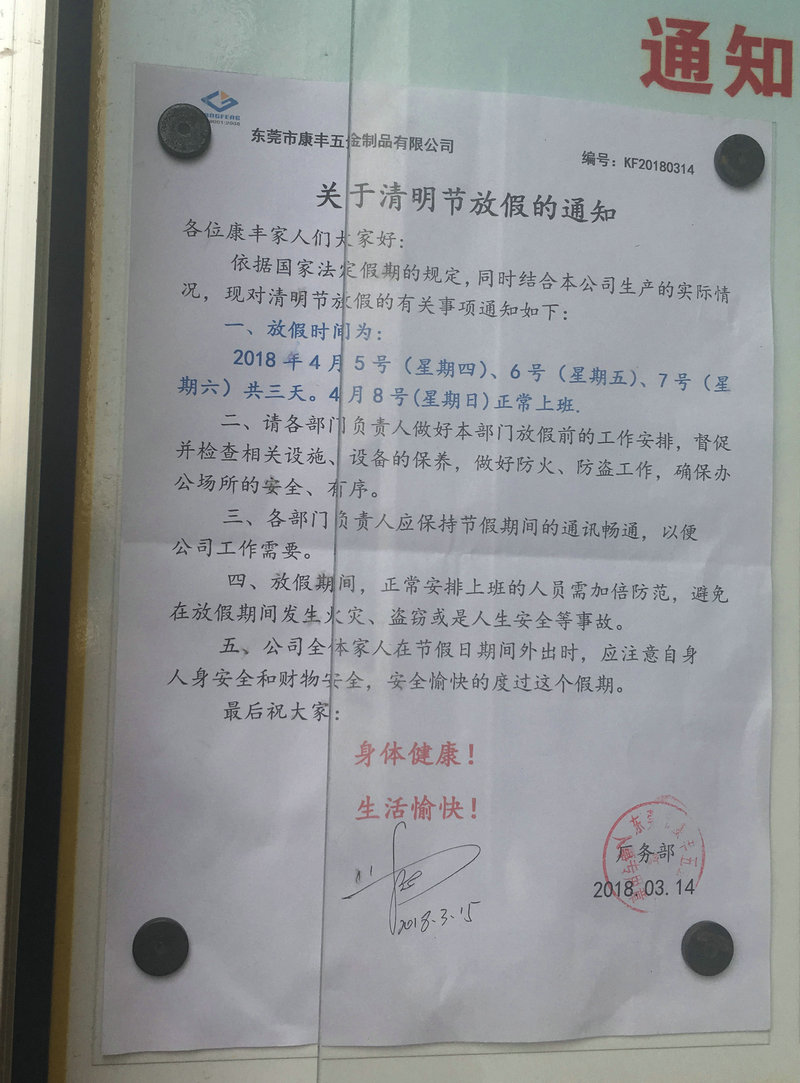 通知
东莞市康丰五金制品有限公司
编号：KF20180314
关于清明节放假的通知
各位康丰家人们大家好：
依据国家法定假期的规定，同时结合本公司生产的实际情
况，现对清明节放假的有关事项通知如下：
一、放假时间为：
2018年4月5号（星期四）、6号（星期五）、7号（星
期六）共三天。4月8号(星期日)正常上班.
二、请各部门负责人做好本部门放假前的工作安排，督促
并检查相关设施、设备的保养，做好防火、防盗工作，确保办
公场所的安全、有序。
三、各部门负责人应保持节假期间的通讯畅通，以便
公司工作需要。
四、放假期间，正常安排上班的人员需加倍防范，避免
在放假期间发生火灾、盗窃或是人生安全等事故。
五、公司全体家人在节假日期间外出时，应注意自身
人身安全和财物安全，安全愉快的度过这个假期。
最后祝大家：
身体健康！
生活愉快！
厂务部
2018.03.14
2018.3.15